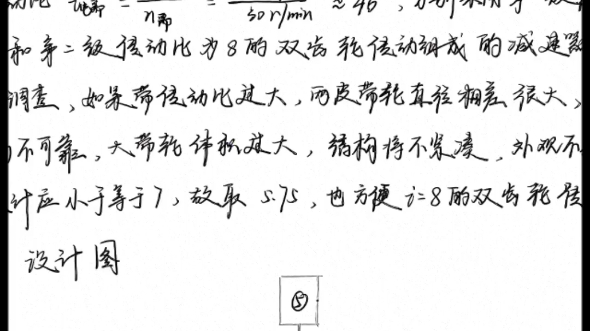 动比 i总 = n / n带 = / 30r/min ≈ 46，分别采用
和第二级传动比为8的双齿轮传动组成的减速器
调查，如果带传动比过大，两皮带轮直径相差很大、
不可靠，大带轮体积过大，结构将不紧凑，外观不
计应小于等于7，故取 5.75，也方便i=8的双齿轮传
设计图
⑤